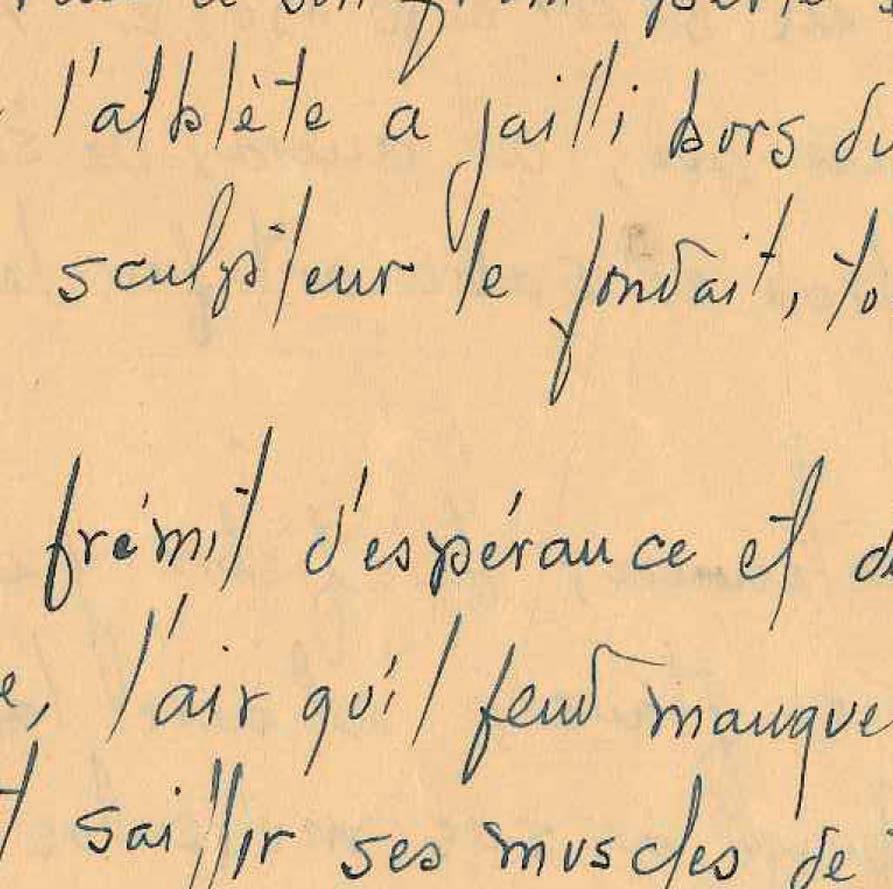 l'athlète a jailli hors du
sculpteur le fondait, to
frémit d'espérance et de
e, l'air qu'il fend manque
t saillir ses muscles de